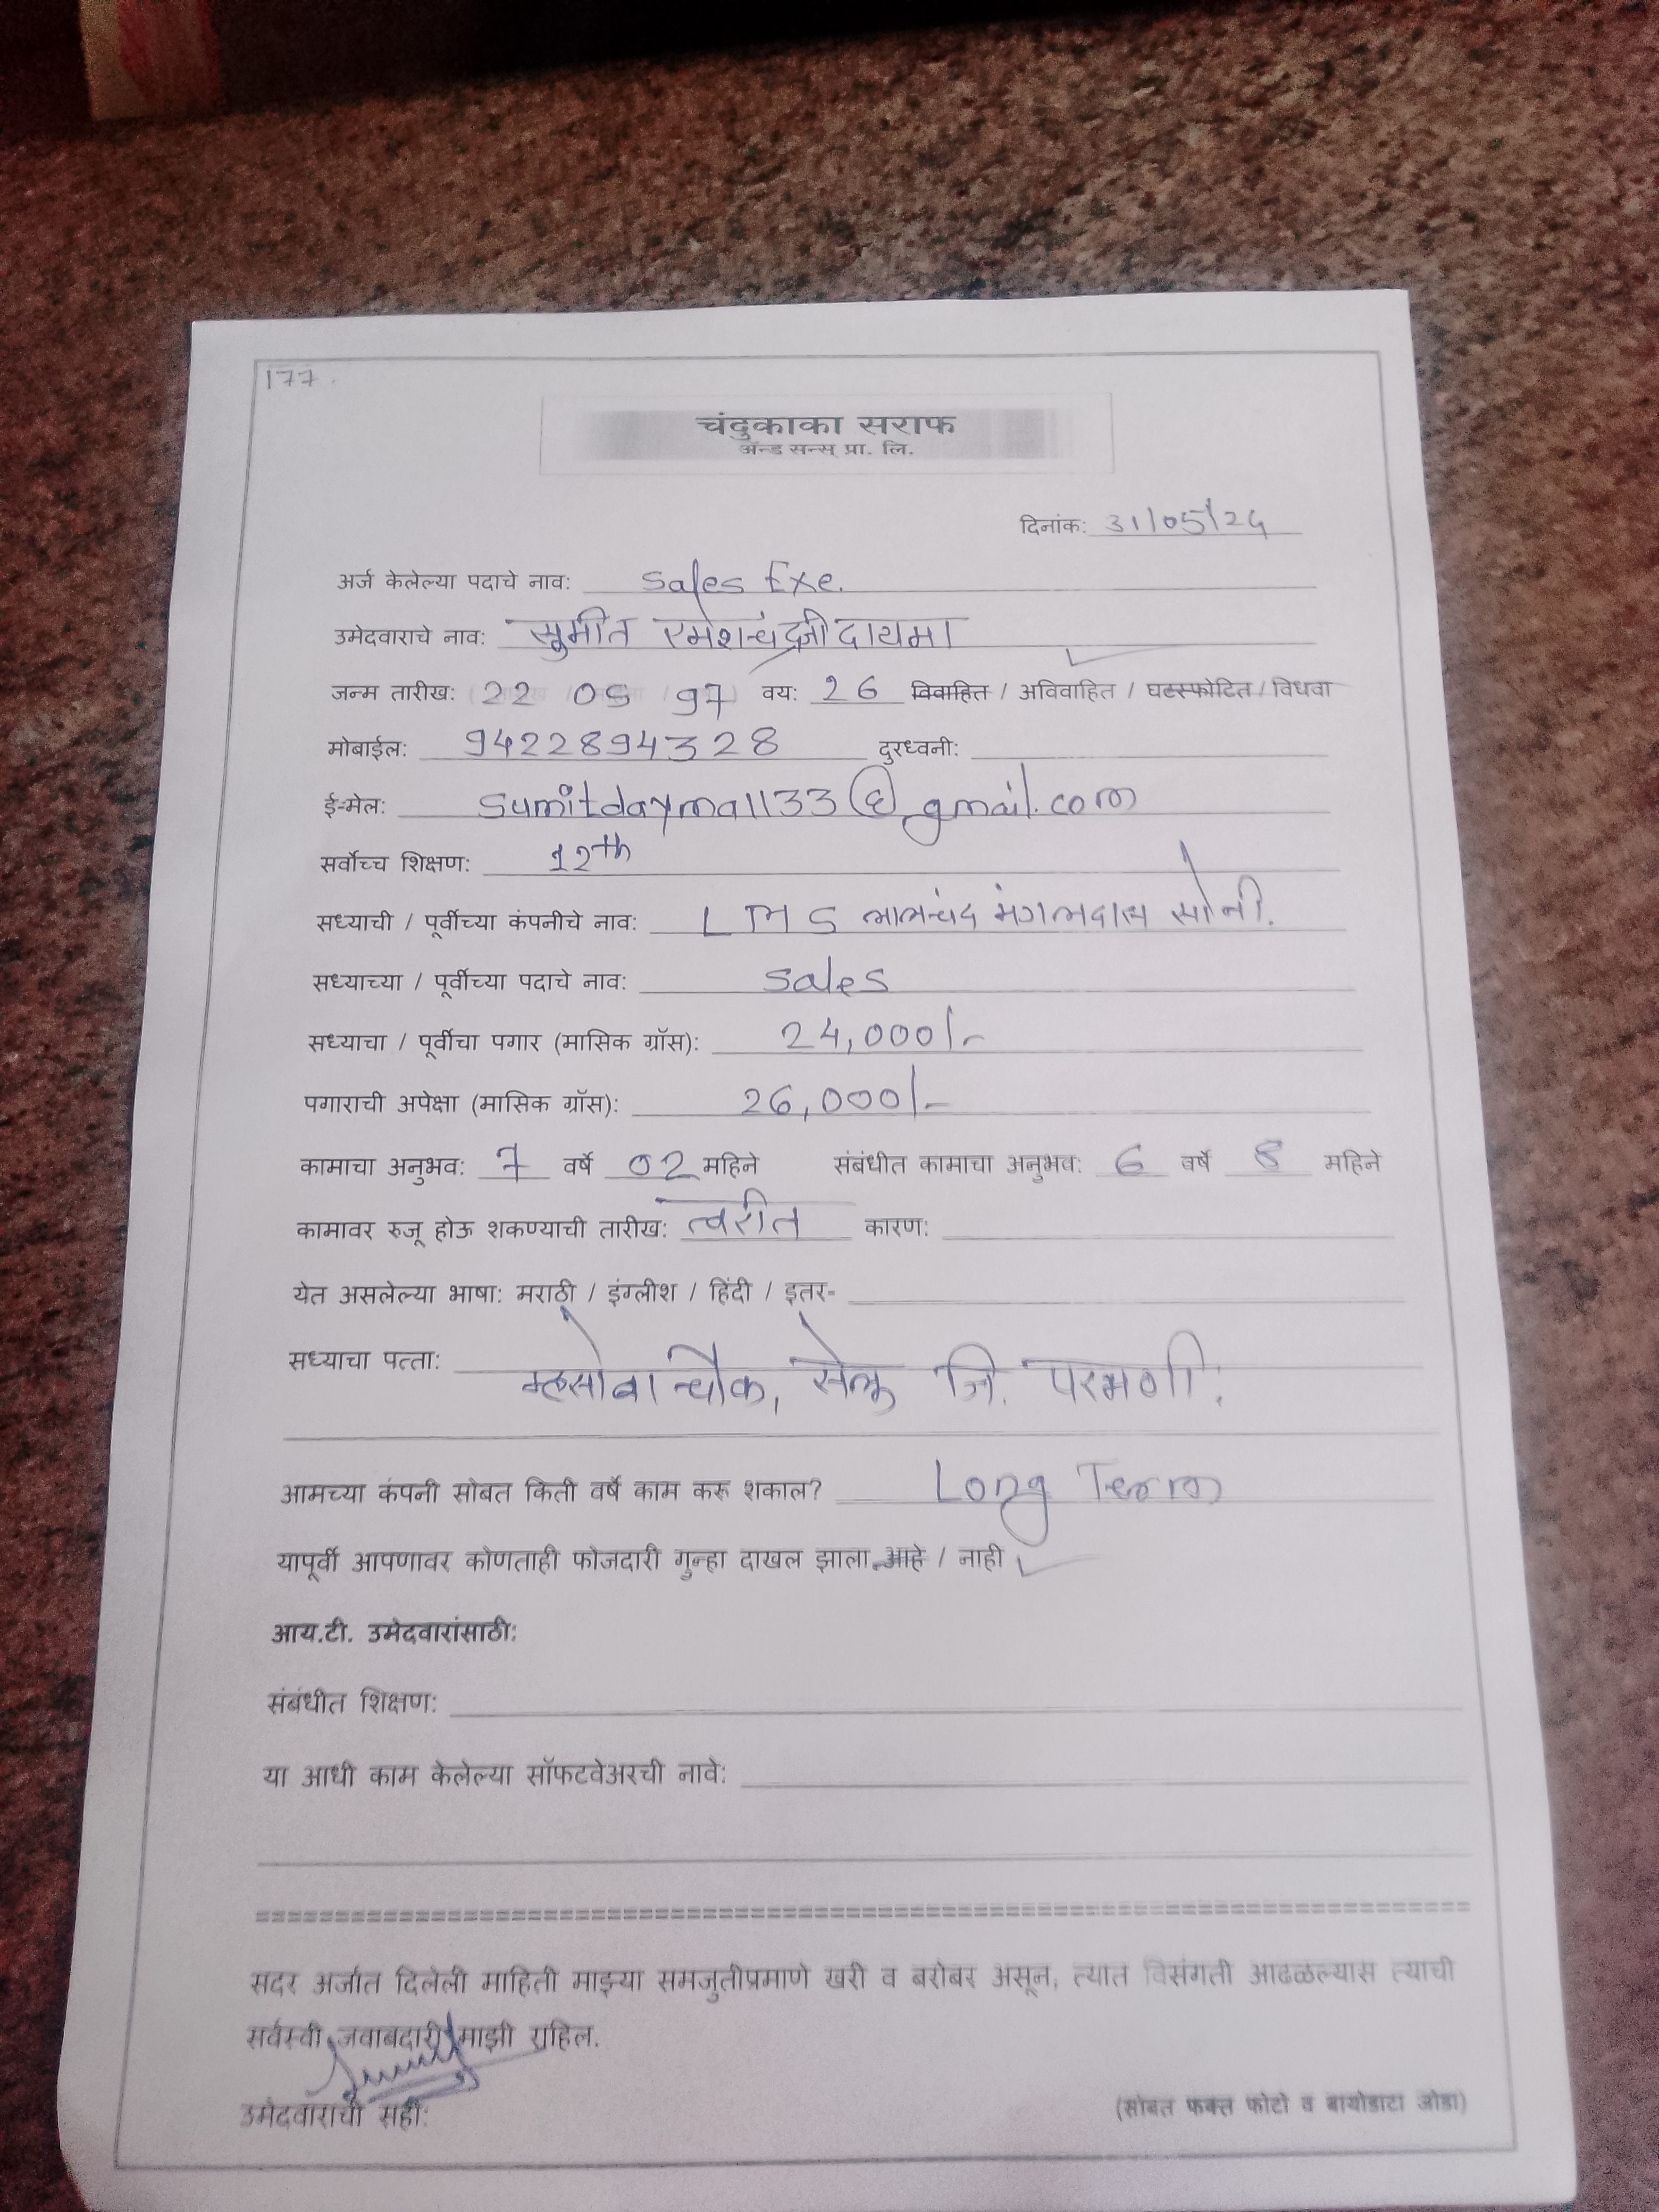 177.
चंदुकाका सराफ
ॲन्ड सन्स् प्रा. लि.
दिनांक: 31/05/24
अर्ज केलेल्या पदाचे नाव: Sales Exe.
उमेदवाराचे नाव: सूमीत रमेशचंद्रजी दायमा
जन्म तारीख: 22 05 97 वय: 26 विवाहित / अविवाहित / घटस्फोटित / विधवा
मोबाईल: 9422894328 दुरध्वनी:
ई-मेल: sumitdayma1133@gmail.com
सर्वोच्च शिक्षण: 12th
सध्याची / पूर्वीच्या कंपनीचे नाव: LMS लालचंद मंगलदास सोनी.
सध्याच्या / पूर्वीच्या पदाचे नाव: Sales
सध्याचा / पूर्वीचा पगार (मासिक ग्रॉस): 24,000/-
पगाराची अपेक्षा (मासिक ग्रॉस): 26,000/-
कामाचा अनुभव: 7 वर्षे 02 महिने संबंधीत कामाचा अनुभव: 6 वर्षे 8 महिने
कामावर रुजू होऊ शकण्याची तारीख: त्वरीत कारण:
येत असलेल्या भाषा: मराठी / इंग्लीश / हिंदी / इतर-
सध्याचा पत्ता: म्हसोबा चौक, सेलू जि. परभणी.
आमच्या कंपनी सोबत किती वर्षे काम करू शकाल? Long Term
यापूर्वी आपणावर कोणताही फोजदारी गुन्हा दाखल झाला आहे / नाही
आय.टी. उमेदवारांसाठी:
संबंधीत शिक्षण:
या आधी काम केलेल्या सॉफटवेअरची नावे:
सदर अर्जात दिलेली माहिती माझ्या समजुतीप्रमाणे खरी व बरोबर असून, त्यात विसंगती आढळल्यास त्याची
सर्वस्वी जवाबदारी माझी राहिल.
उमेदवाराची सही:
(सोबत फक्त फोटो व बायोडाटा जोडा)